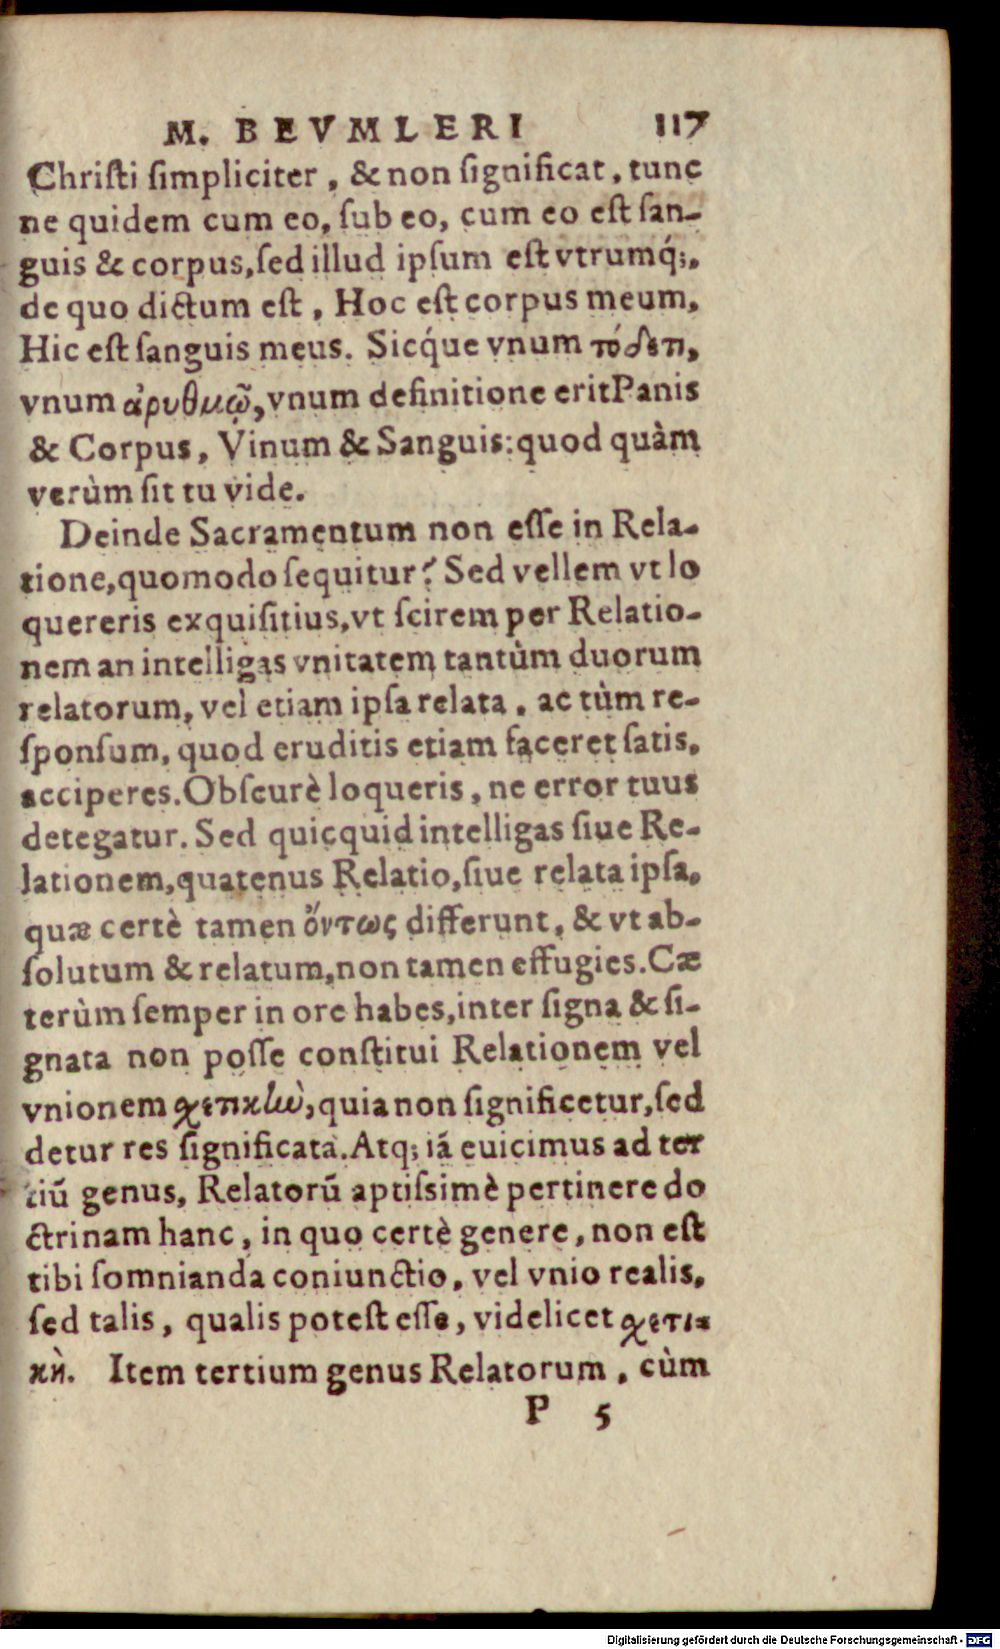 M. BEVMLERI 117
Chriſti ſimpliciter, & non ſignificat, tunc
ne quidem cum eo, ſub eo, cum eo eſt ſan-
guis & corpus, ſed illud ipſum eſt vtrumq́;,
de quo dictum eſt, Hoc eſt corpus meum,
Hic eſt ſanguis meus. Sicq́ue vnum τόδε τι,
vnum ἀρυθμῷ, vnum definitione erit Panis
& Corpus, Vinum & Sanguis: quod quàm
verùm ſit tu vide.
Deinde Sacramentum non eſſe in Rela-
tione, quomodo ſequitur? Sed vellem vt lo
quereris exquiſitius, vt ſcirem per Relatio-
nem an intelligas vnitatem tantùm duorum
relatorum, vel etiam ipſa relata, ac tùm re-
ſponſum, quod eruditis etiam faceret ſatis,
acciperes. Obſcurè loqueris, ne error tuus
detegatur. Sed quicquid intelligas ſiue Re-
lationem, quatenus Relatio, ſiue relata ipſa,
quæ certè tamen ὄντως differunt, & vt ab-
ſolutum & relatum, non tamen effugies. Cæ
terùm ſemper in ore habes, inter ſigna & ſi-
gnata non poſſe conſtitui Relationem vel
vnionem χετικὴν, quia non ſignificetur, ſed
detur res ſignificata. Atq; iã euicimus ad ter
tiũ genus, Relatorũ aptiſsimè pertinere do
ctrinam hanc, in quo certè genere, non eſt
tibi ſomnianda coniunctio, vel vnio realis,
ſed talis, qualis poteſt eſſe, videlicet χετι-
κὴ. Item tertium genus Relatorum, cùm
P 5
Digitalisierung gefördert durch die Deutsche Forschungsgemeinschaft - DFG